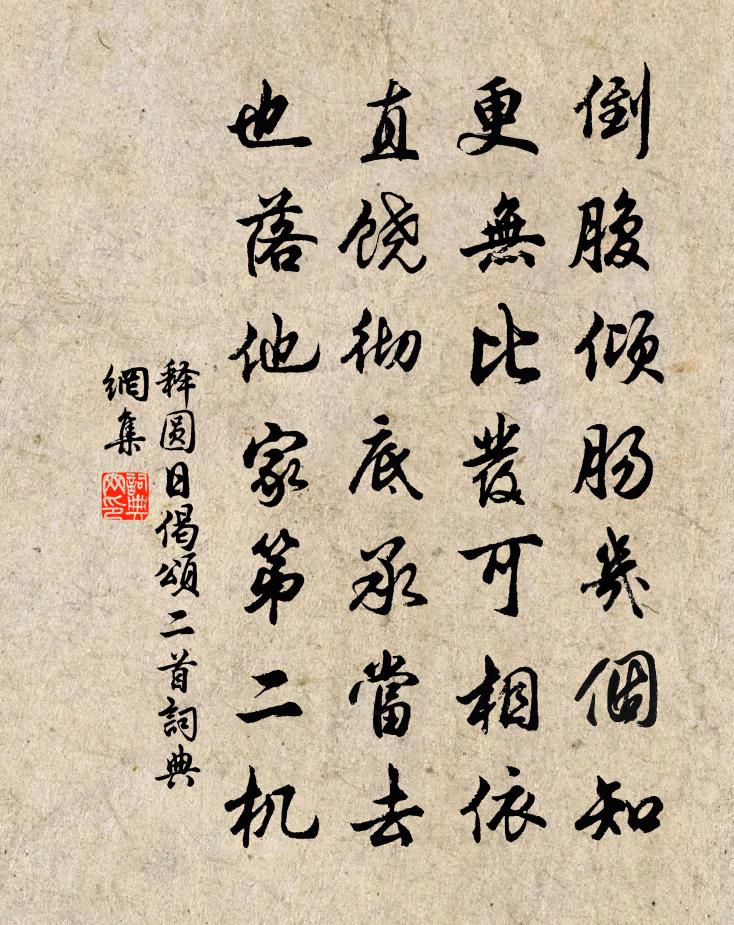 倒腹傾肠幾個知
更無比發可相依
直饶彻底承當去
也落他家第二机
释圆日偈頌二首詞典
網集
詞典网印